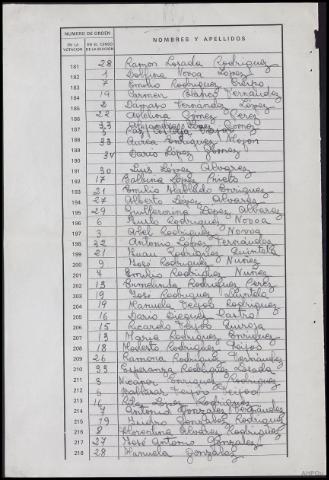 NUMERO DE ORDEN
NOMBRES Y APELLIDOS
EN LA VOTACION
EN EL CENSO
181 28 Ramon Losada Rodriguez
182 1 Delfina Novoa López
183 7 Emilio Rodriguez
184 19 Carmen Blanco Fernandez
185 2 Dámaso Fernández López
186 22 Avelina Gómez Perez
187 33 Gomez
188
189 33 Aurea Enriquez
190 34 Dario López Gomez
191 30 Luis Lopez Alvarez
192 17 Balbina Lopez Prieto
193 21 Emilio Enriquez
194 27 Alberto Lopez Alvarez
195 29 Guillermina Lopez Alvarez
196 6 Rodriguez Novoa
197 3 Abel Rodriguez Novoa
198 32 Antonio Lopez Fernandez
199 21 Juan Rodriguez Quintela
200 9 José Rodriguez Nuñez
201 4 Emilio Rodriguez Nuñez
202 13 Ermelinda Rodriguez Perez
203 19 José Rodriguez Quintela
204 19 Manuela Feijoo Rodriguez
205 16 Dario Dieguez Castro
206 15 Ricardo Feijoo Quiroga
207 13 Maria Rodriguez Enriquez
208 18 Modesto Rodriguez Feijoo
209 26 Ramona Rodriguez Fernández
210 33 Esperanza Rodriguez Losada
211 3 Nicanor Enriquez Rodriguez
212 6 Baltasar Feijoo Feijoo
213 16 Lopez Rodriguez
214 7 Antonio Gonzalez Fernández
215 19 Gonzalez Rodriguez
216 8 Florentina Alvarez Rodriguez
217 27 José Antonio Gonzalez
218 28 Manuela Gonzalez